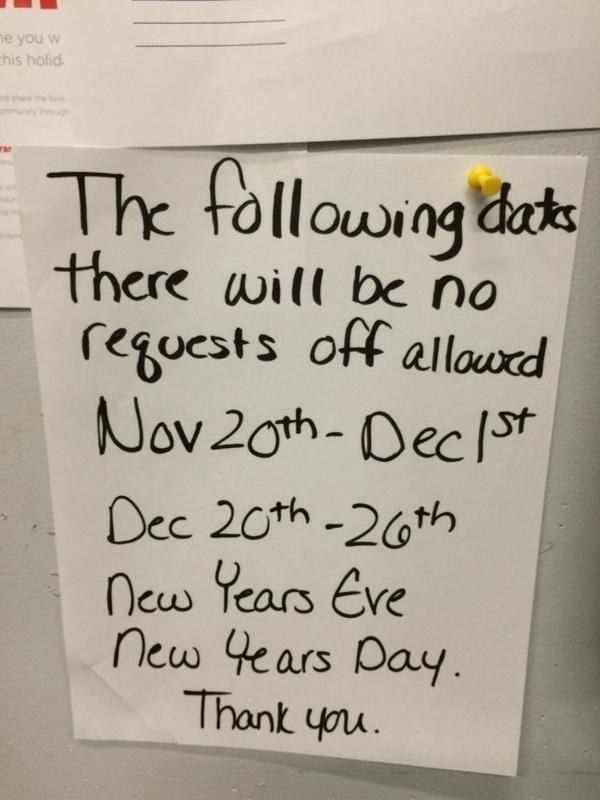 e you w
this holid
nd share the love
ommunity through
The following dates
there will be no
requests off allowed
Nov 20th - Dec 1st
Dec 20th - 26th
New Years Eve
New Years Day.
Thank you.